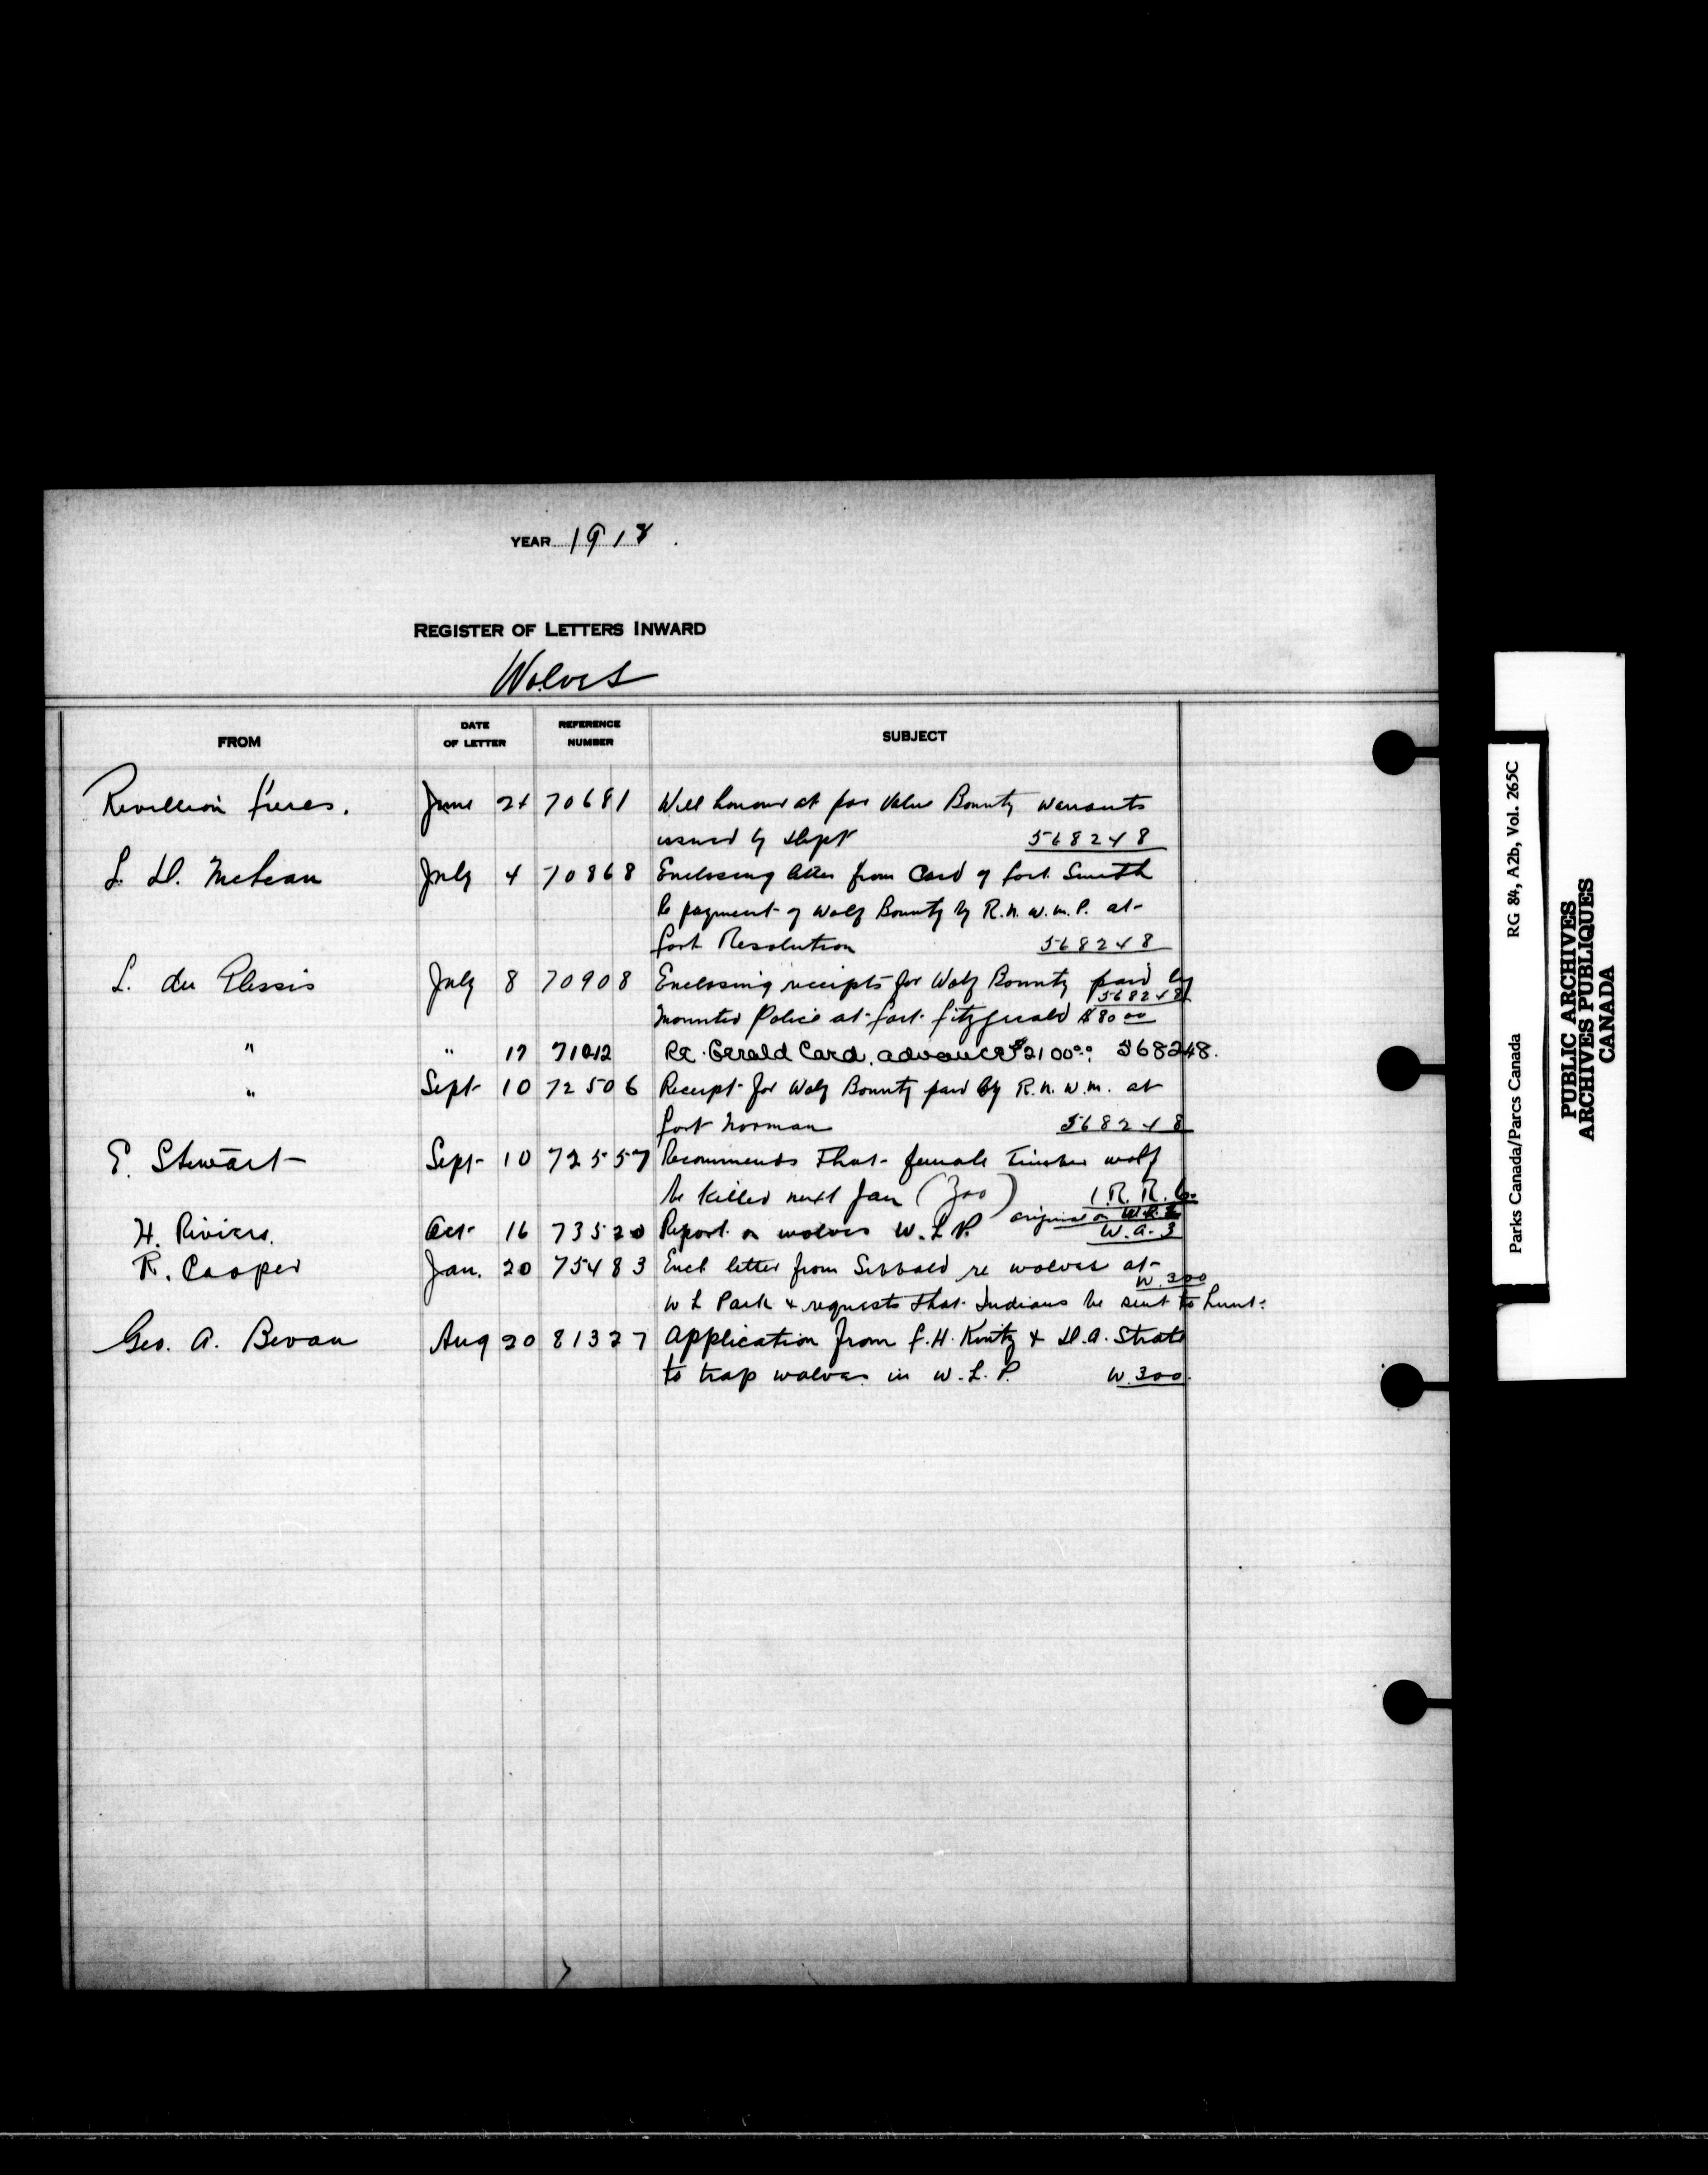 YEAR 1918.
REGISTER OF LETTERS INWARD
Wolves
FROM DATE OF LETTER REFERENCE NUMBER SUBJECT
Revillion frères. June 24 70681 Will honour at par value Bounty warrants
issued by Dept 568248
J. D. McLean July 4 70868 Enclosing letter from Card of Fort Smith
re payment of Wolf Bounty by R.N.W.M.P. at
Fort Resolution 568248
L. du Plessis July 8 70908 Enclosing receipts for Wolf Bounty paid by
568248
Mounted Police at Fort Fitzgerald $80 00
" " 17 71012 Re. Gerald Card, advance $2100 00 568248.
" Sept 10 72506 Receipt for Wolf Bounty paid by R.N.W.M. at
Fort Norman 568248
E. Stewart Sept 10 72557 Recommends that female timber wolf
be killed next Jan (Zoo) R.R.
original on
H. Riviere. Oct 16 73520 Report on wolves W.L.P. W.A.3
R. Cooper Jan. 20 75483 Encl letter from Sibbald re wolves at
W.300
W L Park & requests that Indians be sent to hunt.
Geo. A. Bevan Aug 20 81327 Application from F.H. Kuntz & D.A. Strate
to trap wolves in W.L.P. W.300.
Parks Canada/Parcs Canada RG 84, A2b, Vol. 265C
PUBLIC ARCHIVES
ARCHIVES PUBLIQUES
CANADA